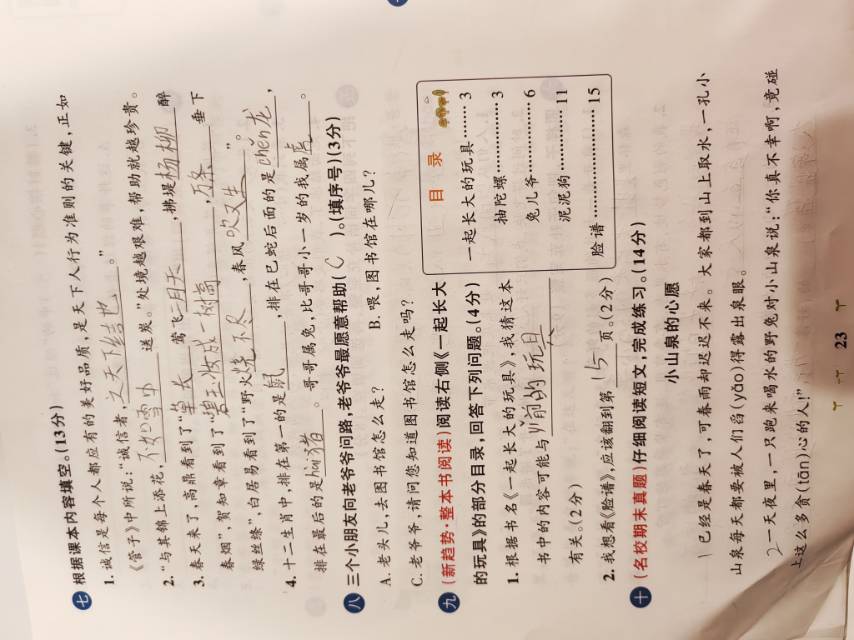 七 根据课本内容填空。(13分)
1. 诚信是每个人都应有的美好品质,是天下人行为准则的关键,正如
《管子》中所说:“诚信者,之天下结也。”
2. “与其锦上添花,不如雪中送炭。”处境越艰难,帮助就越珍贵。
3. 春天来了,高鼎看到了“草长莺飞二月天,拂堤杨柳醉
春烟”,贺知章看到了“碧玉妆成一树高,万条垂下
绿丝绦”,白居易看到了“野火烧不尽,春风吹又生”。
4. 十二生肖中,排在第一的是鼠,排在巳蛇后面的是chén龙,
排在最后的是hài猪。哥哥属兔,比哥哥小一岁的我属
。
八 三个小朋友向老爷爷问路,老爷爷最愿意帮助( C )。(填序号)(3分)
A. 老头儿,去图书馆怎么走? B. 喂,图书馆在哪儿?
C. 老爷爷,请问您知道图书馆怎么走吗?
九 (新趋势·整本书阅读)阅读右侧《一起长大
的玩具》的部分目录,回答下列问题。(4分)
1. 根据书名《一起长大的玩具》,我猜这本
书中的内容可能与 的玩具
有关。(2分)
2. 我想看《脸谱》,应该翻到第15页。(2分)
目 录
一起长大的玩具……3
抽陀螺……3
兔儿爷……6
泥泥狗……11
脸谱……15
十 (名校期末真题)仔细阅读短文,完成练习。(14分)
小山泉的心愿
1 已经是春天了,可春雨却迟迟不来。大家都到山上取水,一孔小
山泉每天都要被人们舀(yǎo)得露出泉眼。
2 一天夜里,一只跑来喝水的野兔对小山泉说:“你真不幸啊,竟碰
上这么多贪(tān)心的人!”
23